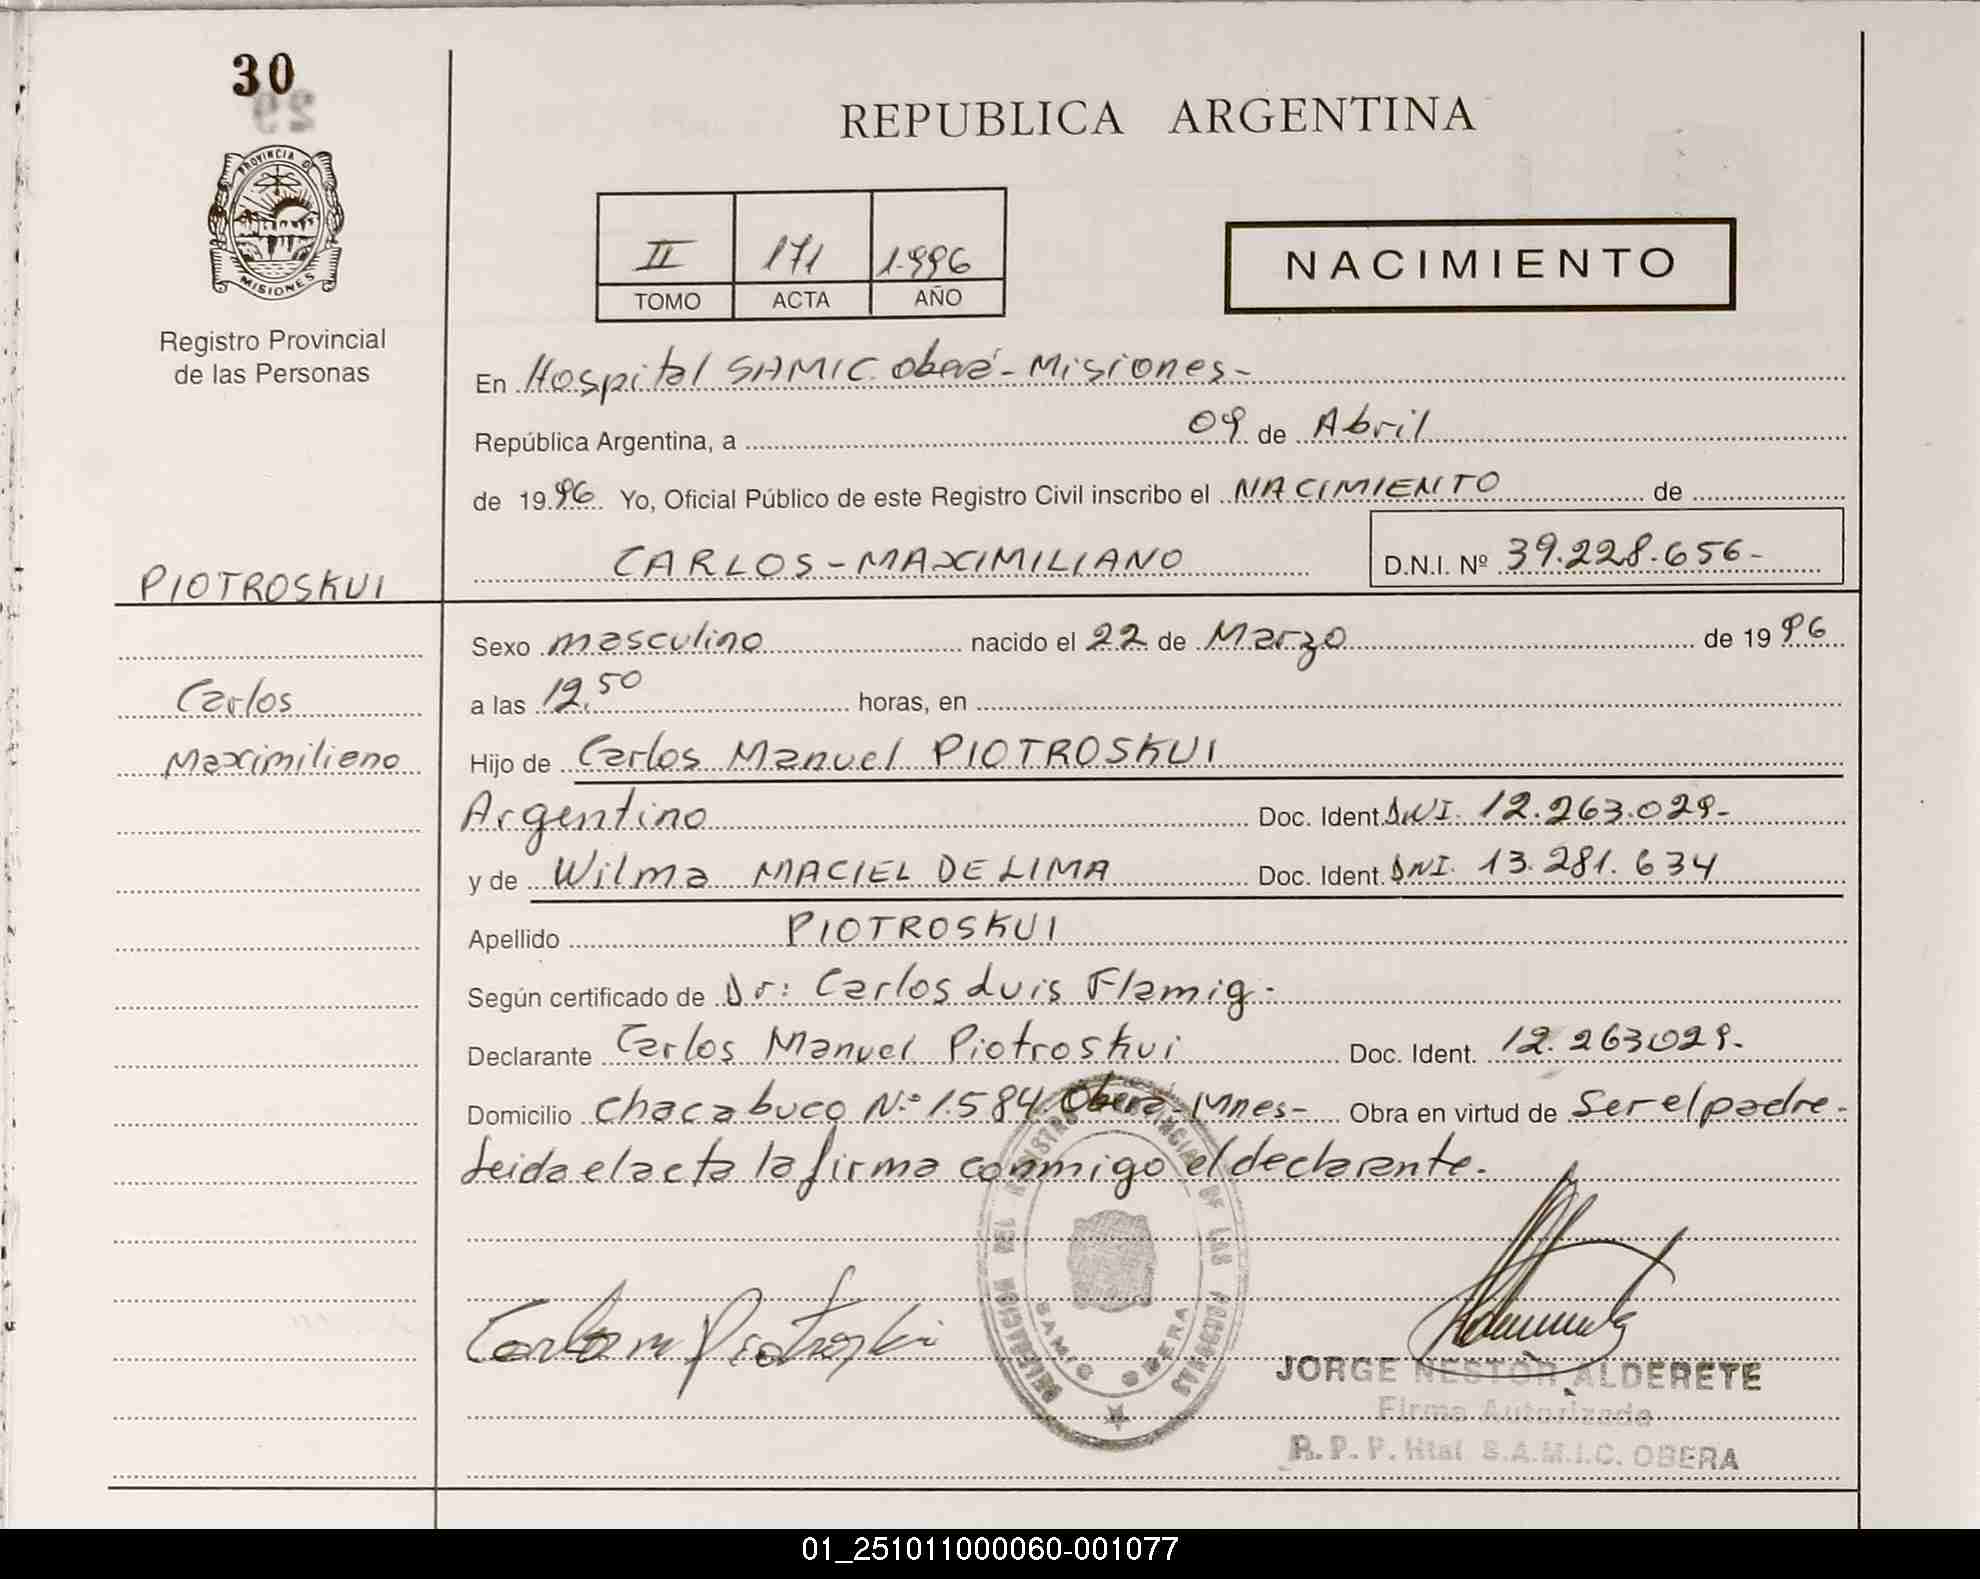 30
29
PROVINCIA DE
MISIONES
Registro Provincial
de las Personas
REPUBLICA ARGENTINA
II 171 1.996
TOMO ACTA AÑO
NACIMIENTO
En Hospital SAMIC. Oberá - Misiones-
República Argentina, a 09 de Abril
de 1996 Yo, Oficial Público de este Registro Civil inscribo el NACIMIENTO de
CARLOS-MAXIMILIANO D.N.I. Nº 39.228.656-
PIOTROSKUI
Carlos
Maximiliano
Sexo masculino nacido el 22 de Marzo de 1996
a las 12,50 horas, en
Hijo de Carlos Manuel PIOTROSKUI
Argentino Doc. Ident. DNI. 12.263.029-
y de Wilma MACIEL DE LIMA Doc. Ident. DNI. 13.281.634
Apellido PIOTROSKUI
Según certificado de Dr: Carlos Luis Flamig-
Declarante Carlos Manuel Piotroskui Doc. Ident. 12.263029.-
Domicilio Chacabuco N:º 1.584. Oberá-Mnes- Obra en virtud de Ser el padre-
Leida el acta la firma conmigo el declarante.-
DELEGACION DEL REGISTRO PROVINCIAL DE LAS PERSONAS
SAMIC OBERA
JORGE NESTOR ALDERETE
Firma Autorizada
R. P. P. Htal S.A.M.I.C. OBERA
01_251011000060-001077